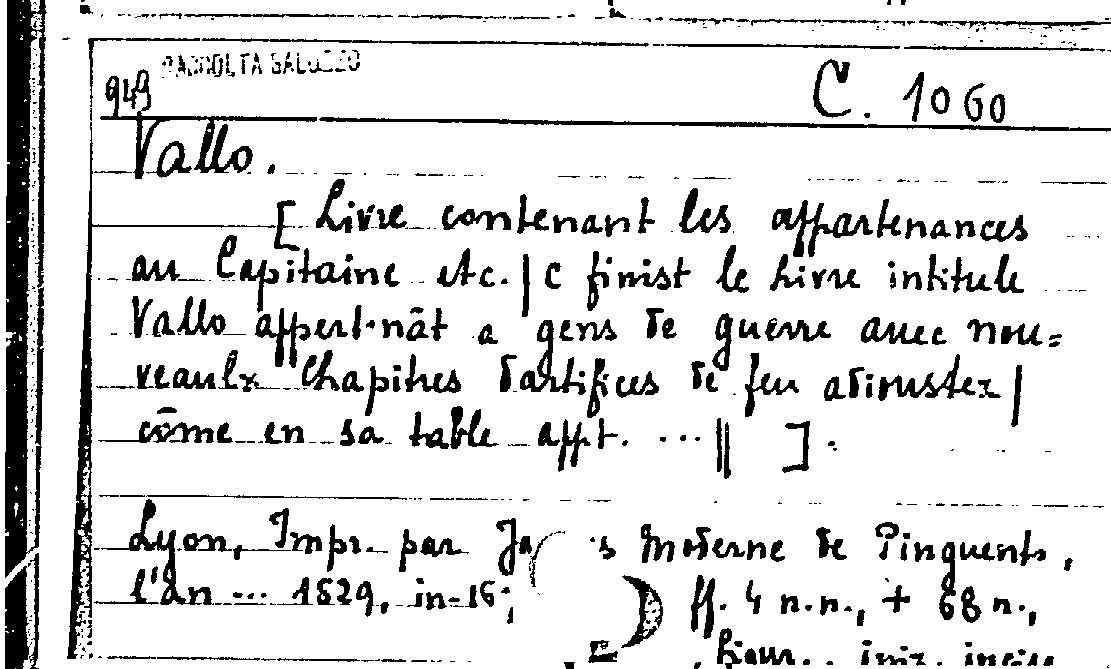 949 RACCOLTA SALUZZO
C. 1060
Vallo.
[ Livre contenant les appartenances
au Capitaine etc. | C finist le Livre intitule
Vallo appert.nāt a gens de guerre auec nou=
veaulx Chapitres dartifices de feu adioustez |
cōme en sa table appt. ... || ].
Lyon, Impr. par Ja s Moderne de Pinguents,
l'an ... 1529, in-16°,
ff. 4 n.n., + 68 n.,
Figur. iniz. incise